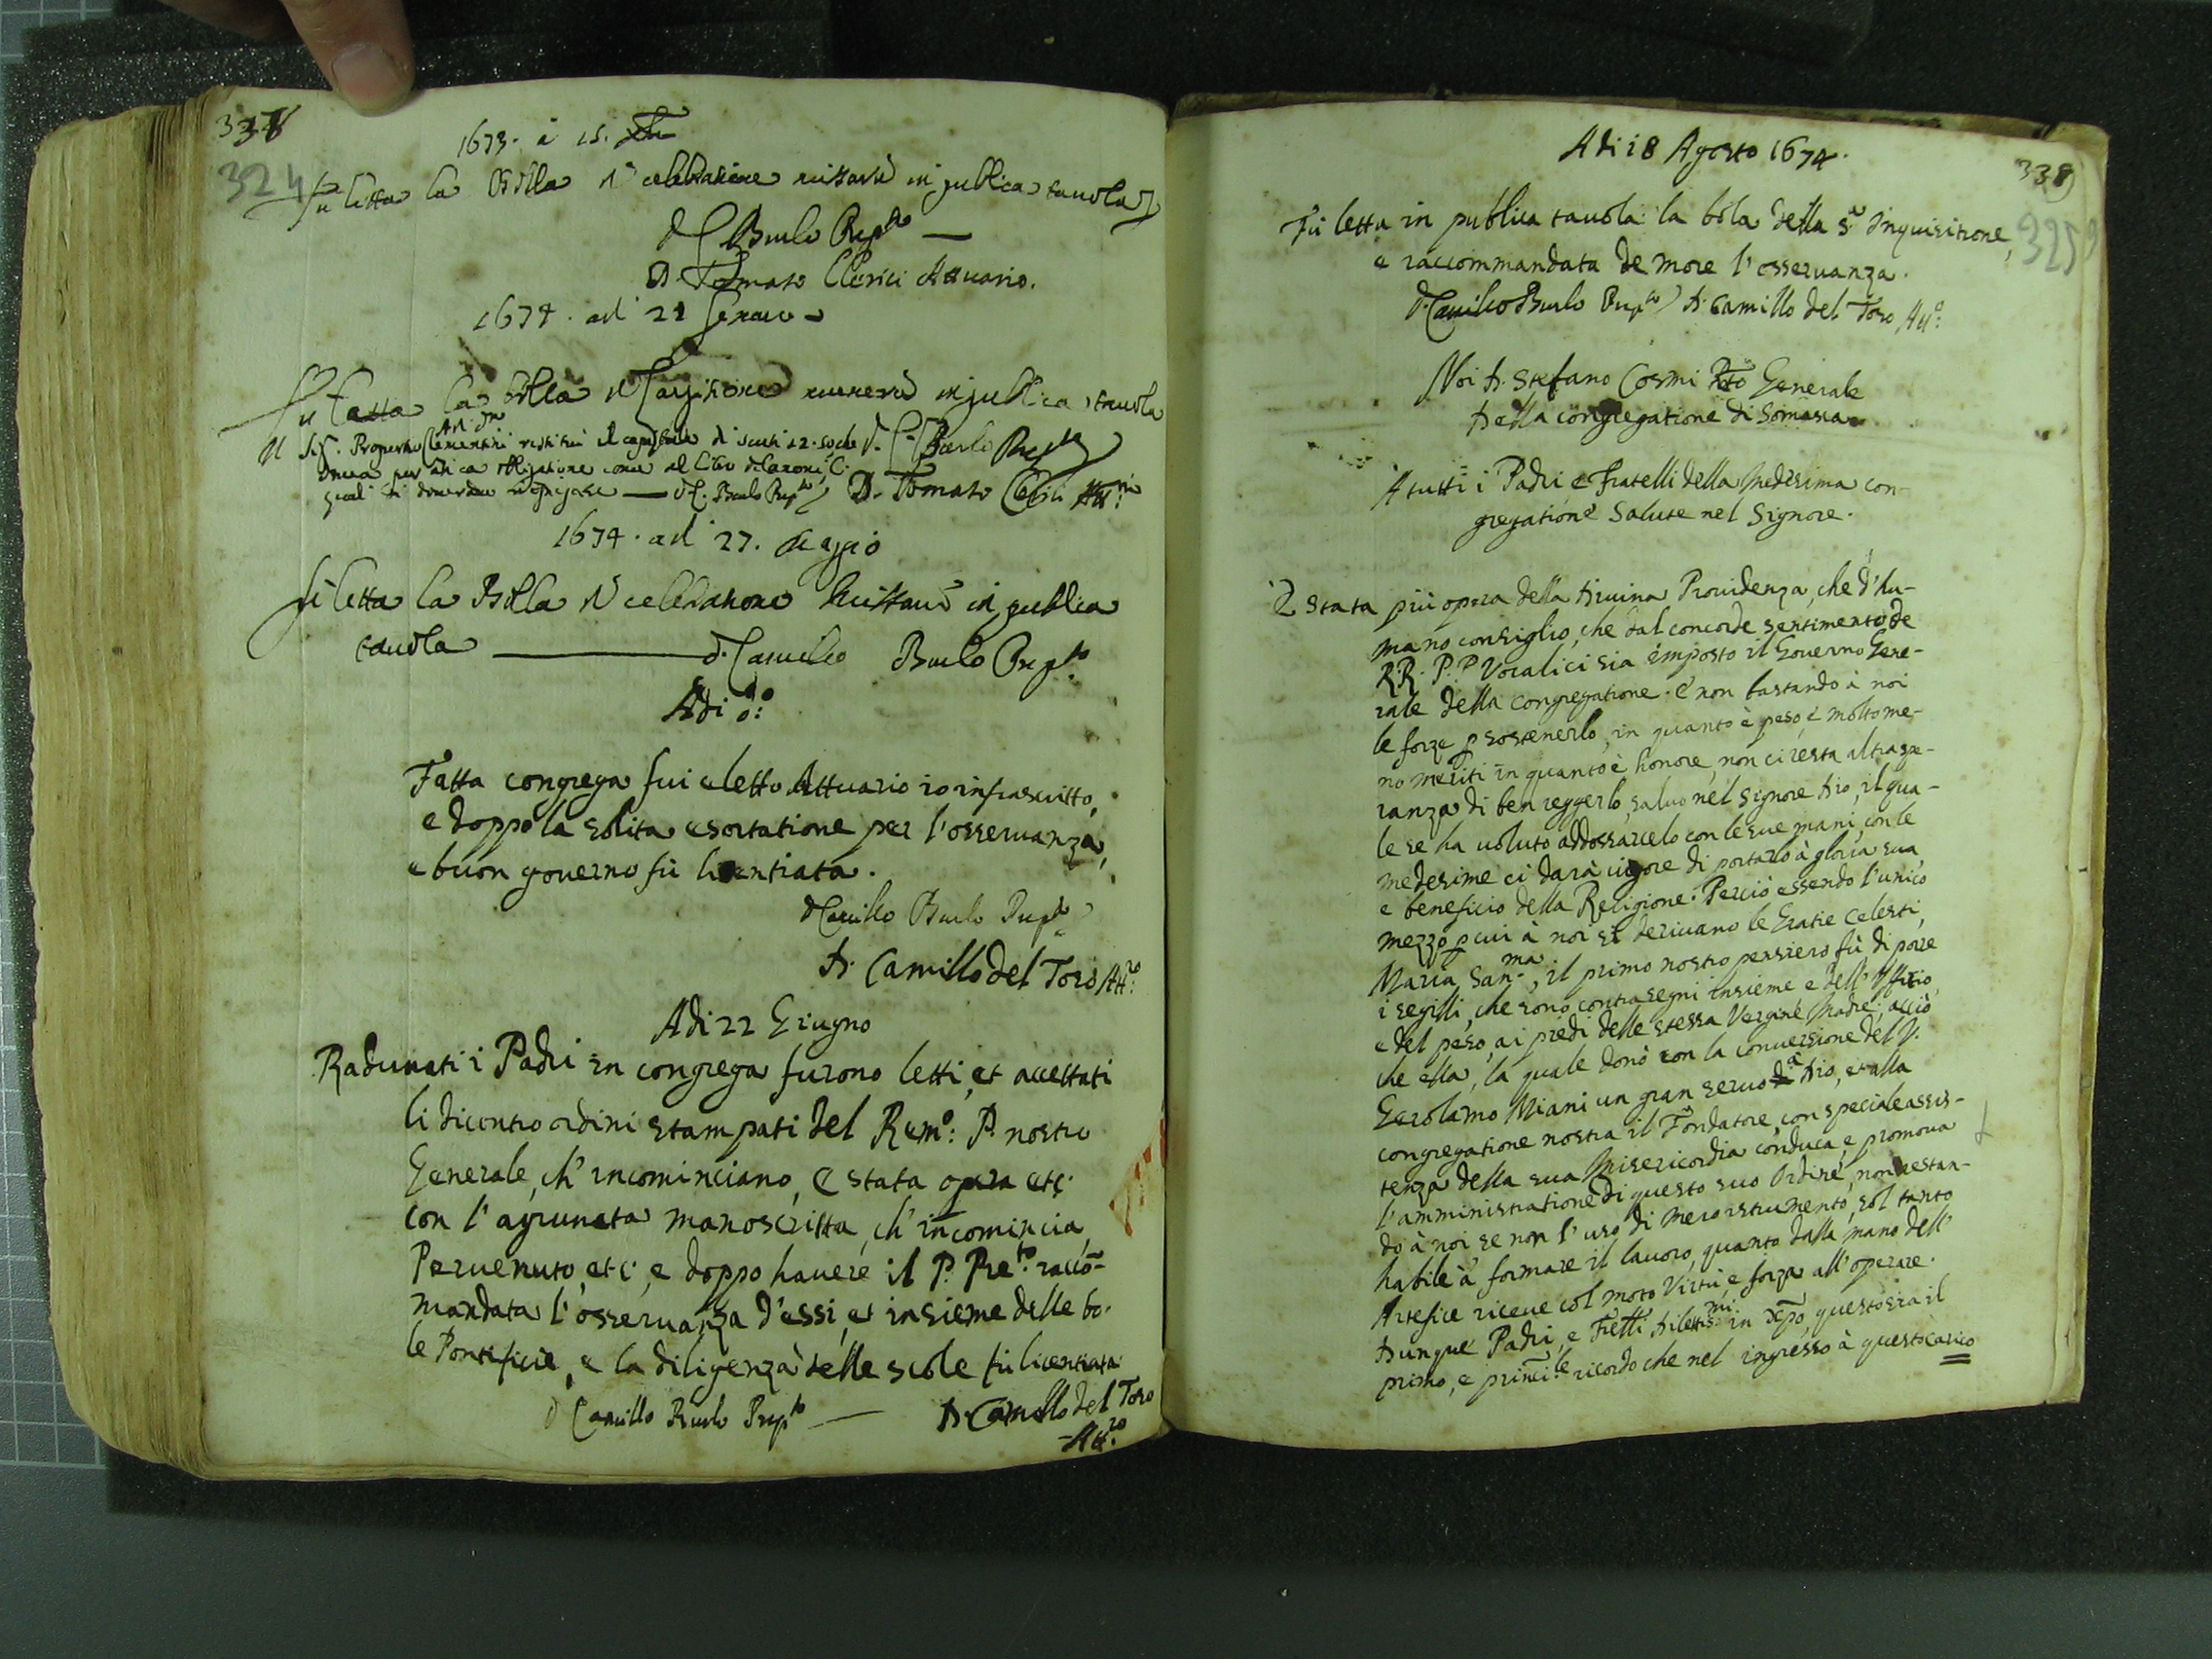 337
324
1673. à 15. Xbre
Fu letta la Bolla de celebratione missarum in publica tavola
D. C. Burlo Prepto
D. Tomaso Clerici Attuario.
1674. adi 21 Genaro
Fu letta la bolla de largitione munerum in publica tavola
Adi do
Il Sig. Properto Clementini restituì il capitale di scuti 12.50 che D. C. Burlo Prepto
per antica obligatione come al libro de Canoni, C.
quali si doveranno D. C. Burlo Prepto D. Tomaso Clerici Attrio
1674. adi 27. Maggio
Fu letta la Bolla de celebratione Missarum in publica
tavola D. Camillo Burlo Prepto
Adi do:
Fatta congrega fui eletto Attuario io infrascritto,
e doppo la solita esortatione per l'osservanza,
e buon governo fù licentiata.
D Camillo Burlo Prepto
D. Camillo del Toro Attro:
Adi 22 Giugno
Radunati i Padri in congrega furono letti, et accettati
li dicontro ordini stampati del Remo: P. nostro
Generale, ch'incominciano, E stata opera etc:
con l'agiunata manoscritta, ch'incomincia,
Pervenuto, etc:, e doppo havere il P. Preto: racco-
mandata l'osservanza d'essi, et insieme delle bo-
le Pontificie, e la diligenza delle scole fù licentiata
D Camillo Burlo Prepto D. Camillo del Toro
Attro
Adi 18 Agosto 1674.
338
325
Fù letta in publica tavola la bola della Sa Inquisitione,
e raccommandata de more l'osservanza.
D. Camillo Burlo Prepto D. Camillo del Toro, Atto:
Noi D. Stefano Cosmi Pto Generale
Della congregatione di Somasca
A tutti i Padri, e fratelli della medesima con-
gregatione Salute nel Signore.
E stata più opera della Divina Providenza, che d'hu-
mano consiglio, che dal concorde sentimento de
RR. PP. Vocali ci sia imposto il Governo Gene-
rale della congregatione. E non bastando à noi
le forze p sostenerlo, in quanto è peso, e molto me-
no meriti in quanto è honore, non ci resta altra spe-
ranza di ben reggerlo, salvo nel Signore Dio, il qua-
le se ha voluto addossarcelo con le sue mani, con le
medesime ci darà vigore di portarlo à gloria sua,
e beneficio della Religione. Perciò essendo l'unico
mezzo p cui à noi si derivano le Gratie Celesti,
Maria Sanma, il primo nostro pensiero fù di porre
i segilli, che sono contrasegni insieme e dell'Ufficio,
e del peso, ai piedi delle stessa Vergine Madre, acciò
che ella, la quale donò con la conversione del V.
Gerolamo Miani un gran servo à Dio, et alla
congregatione nostra il Fondatore, con speciale assis-
tenza della sua Misericordia conduca, e promova
l'amministratione di questo suo Ordine, non restan-
do à noi se non l'uso di mero istrumento, sol tanto
habile à formare il lavoro, quanto dalla mano dell'
Artefice riceve col moto Virtù, e forza all'operare.
Dunque Padri, e Fretti Dilettismi: in Xpo, questo sia il
primo, e princile ricordo che nel ingresso à questo carico